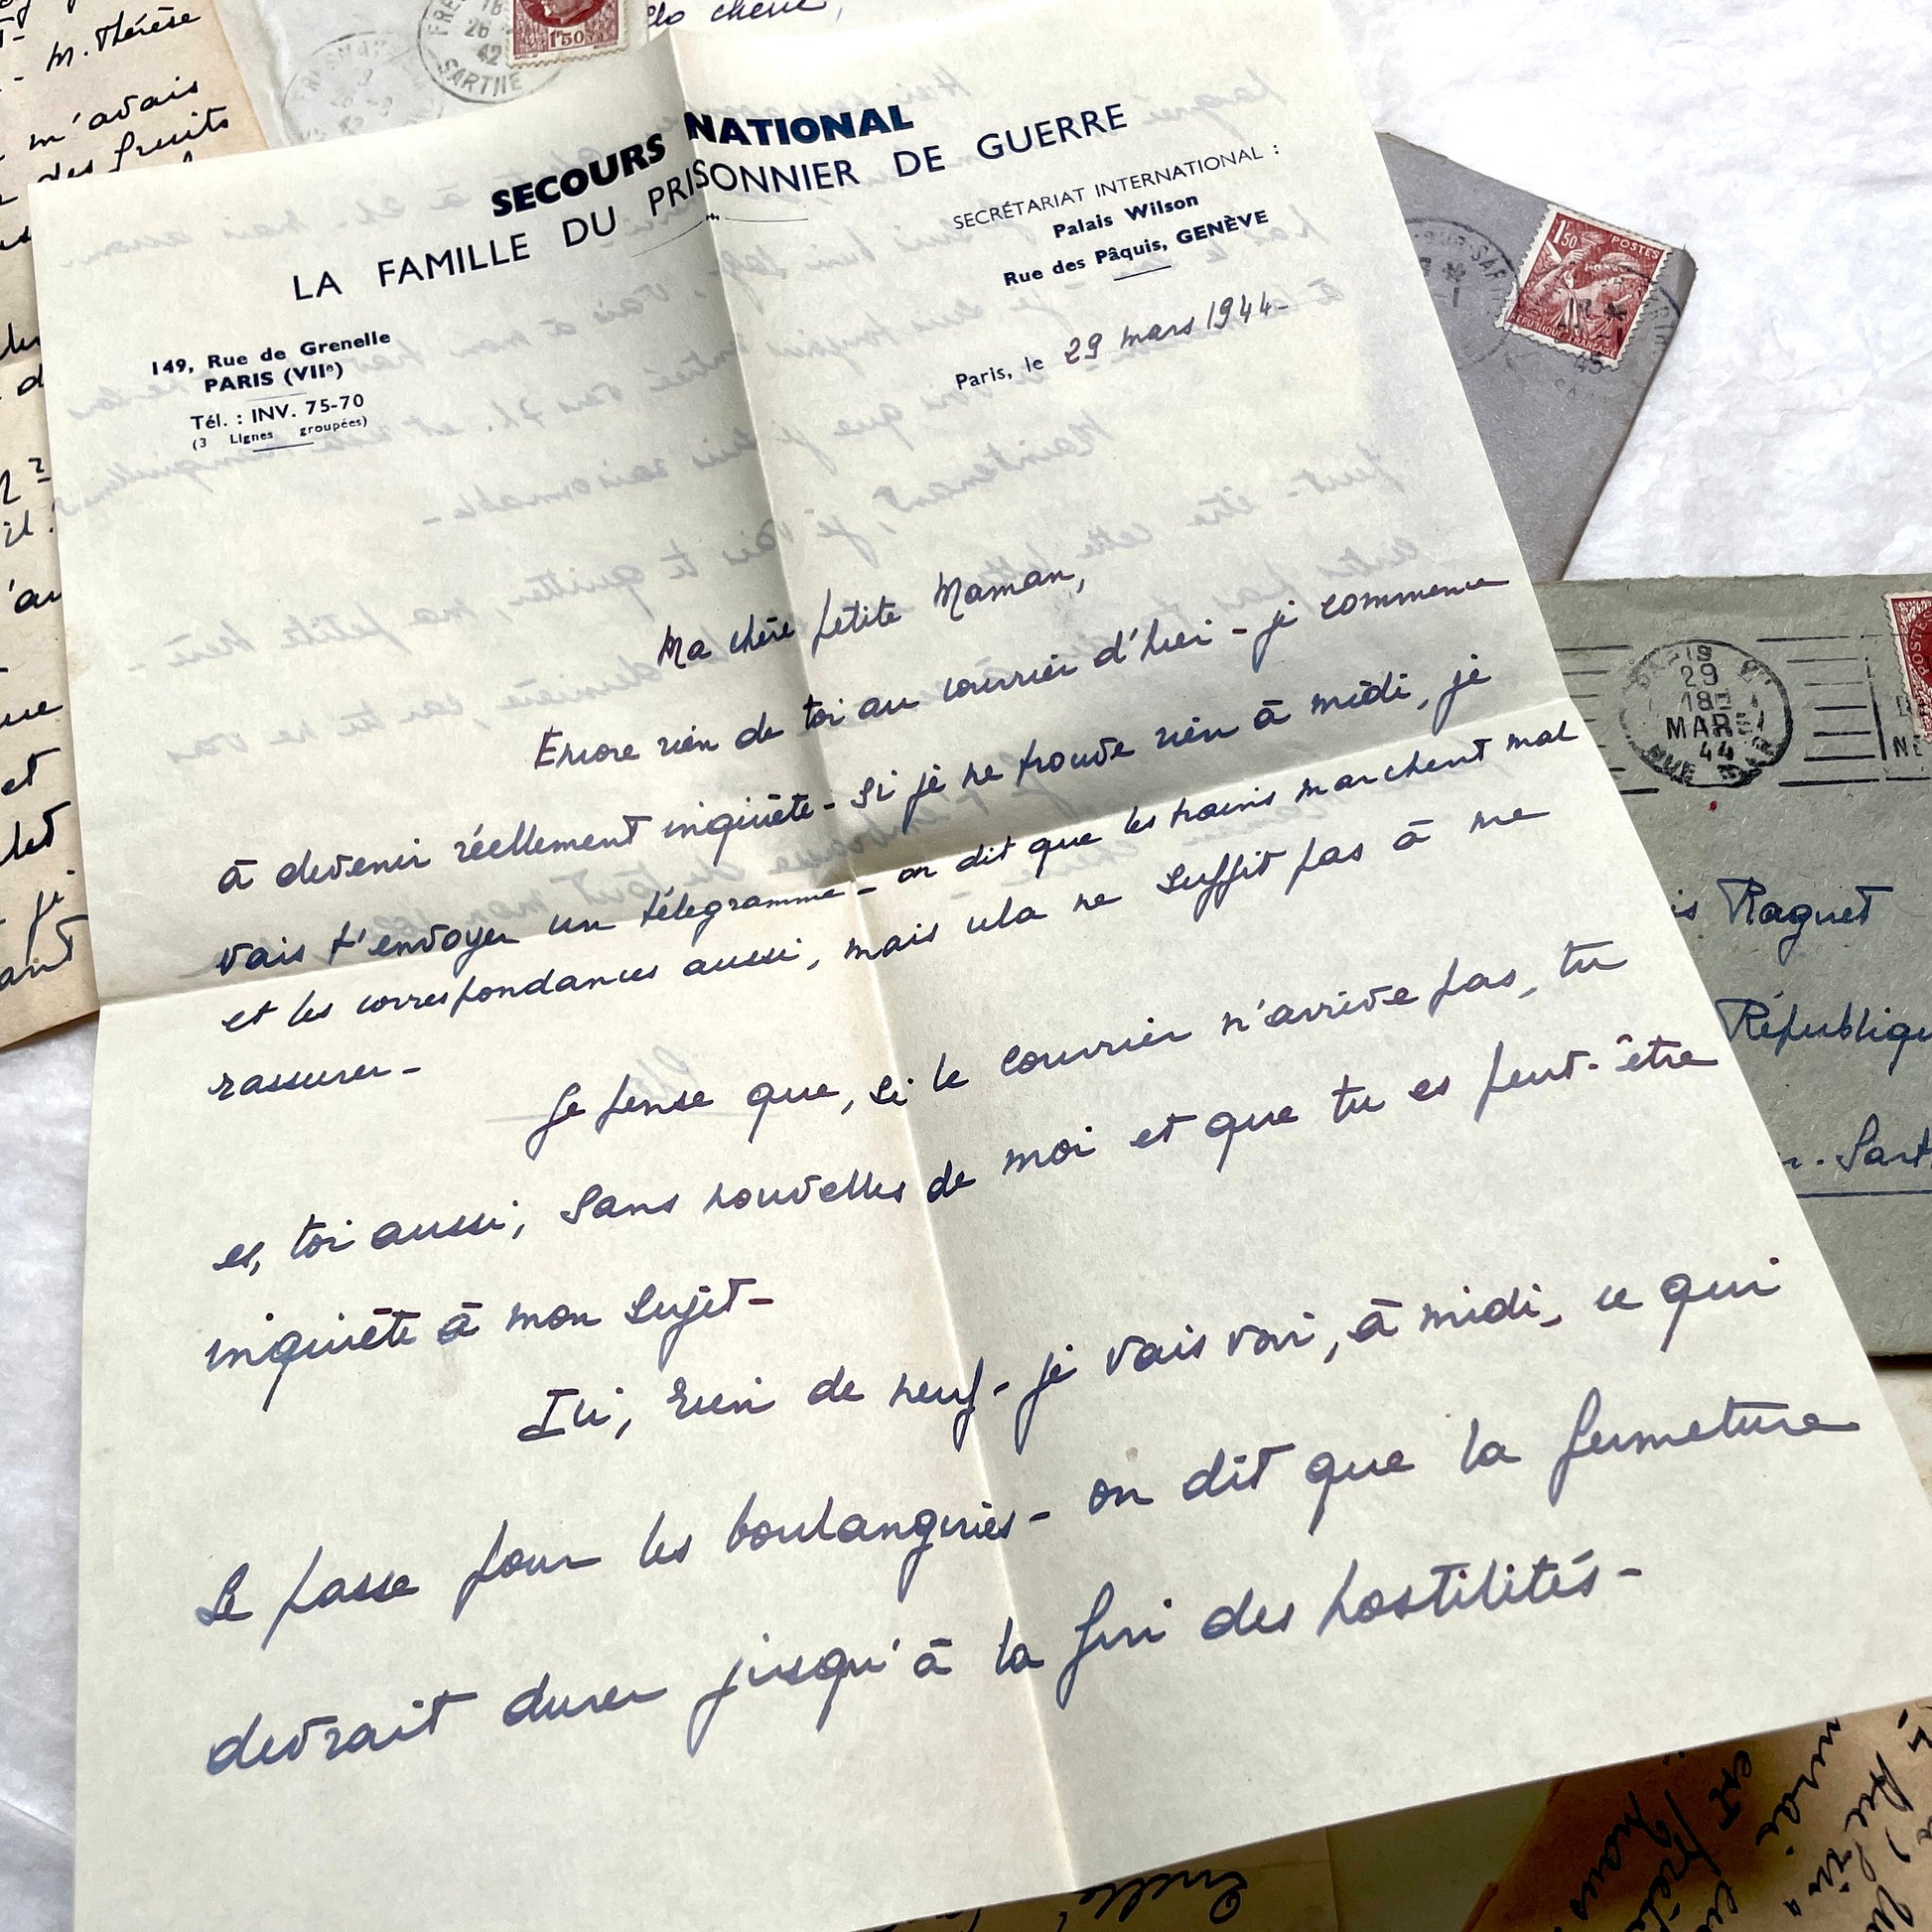 SECOURS NATIONAL
LA FAMILLE DU PRISONNIER DE GUERRE
SECRÉTARIAT INTERNATIONAL :
Palais Wilson
Rue des Pâquis, GENÈVE
149, Rue de Grenelle
PARIS (VIIe)
Tél. : INV. 75-70
(3 Lignes groupées)
Paris, le 29 mars 1944-
Ma chère petite Maman,
Encore rien de toi au courrier d'hier - je commence
à devenir réellement inquiète - Si je ne trouve rien à midi, je
vais t'envoyer un télégramme - on dit que les trains marchent mal
et les correspondances aussi, mais cela ne suffit pas à me
rassurer -
Je pense que, si le courrier n'arrive pas, tu
es, toi aussi, sans nouvelles de moi et que tu es peut-être
inquiète à mon sujet -
Ici, rien de neuf - je vais voir, à midi, ce qui
se passe pour les boulangeries - on dit que la fermeture
devrait durer jusqu'à la fin des hostilités -
M. Thérèse
m'avais
des fruits
et
je
26
42
SARTHE
1F50
1F50 POSTES
RÉPUBLIQUE FRANÇAISE
45
PARIS
29
18H
MARS
44
Raguet
République
Sart